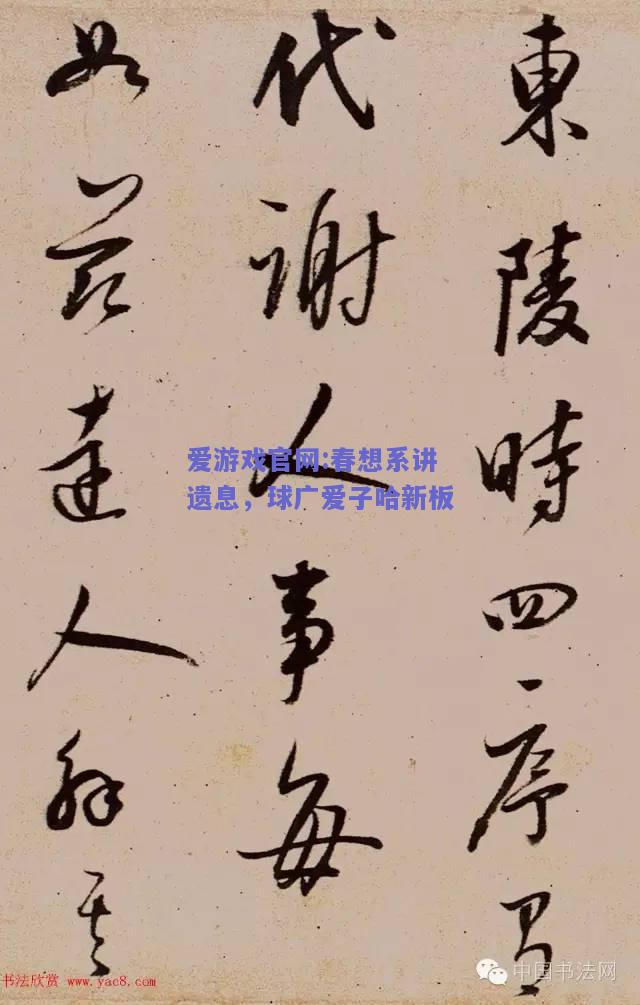 東陵時四序有
代謝人事每
如茲達人解其
爱游戏官网:春想系讲
遗息，球广爱子哈新板
书法欣赏 www.yac8.com
中国书法网